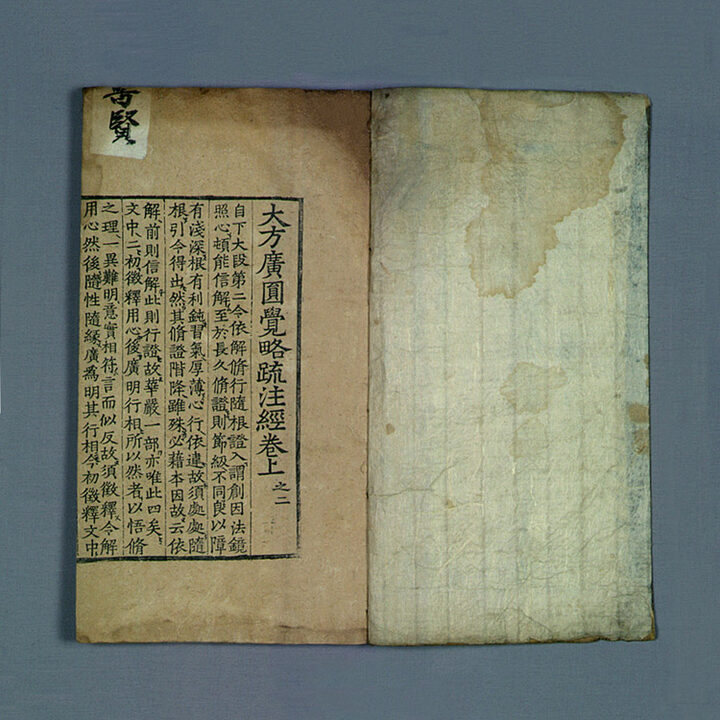 大方廣圎覺略䟽注經卷上之二
自下大段第二令依解脩行隨根證入謂創因法鏡
照心頓能信解至於長久脩證則節級不同良以障
有淺深根有利鈍習氣厚薄心行依違故須處處隨
根引令得出然其脩證階降雖殊必藉本因故云依
解前則信解此則行證故華嚴一部亦唯此四矣
文中二初徵釋用心後廣明行相所以然者以悟脩
之理一異難明意實相符言而似反故須徵釋令解
用心然後隨性隨緣廣爲明其行相今初徵釋文中
普賢